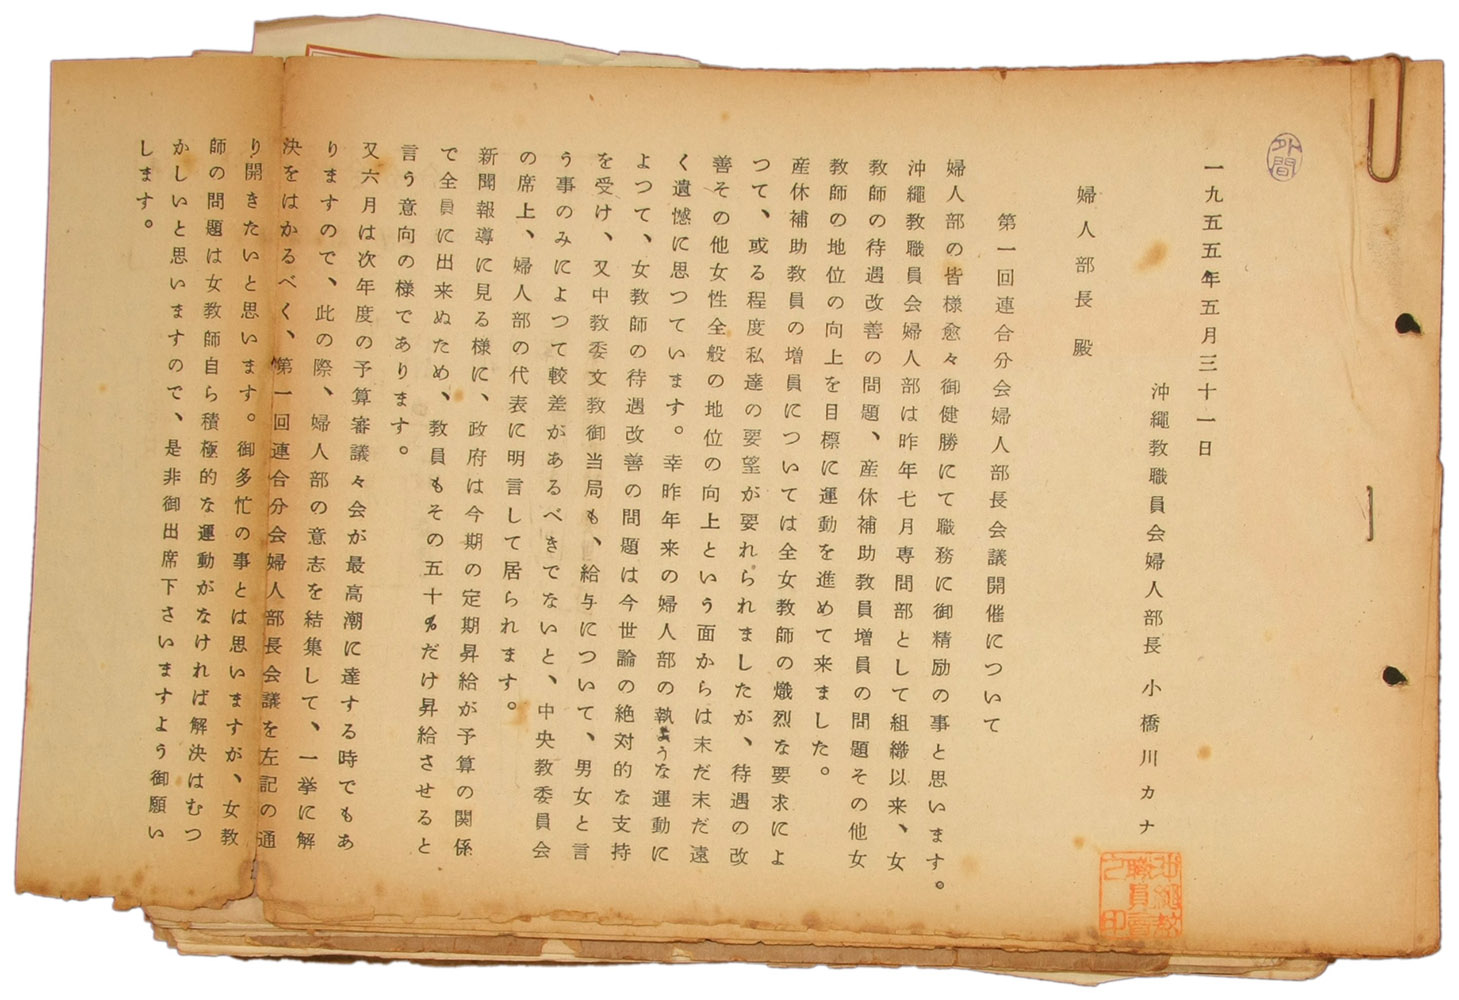 外間
一九五五年五月三十一日
沖繩教職員会婦人部長 小橋川カナ
沖縄教職員會之印
婦人部長 殿
第一回連合分会婦人部長会議開催について
婦人部の皆様愈々御健勝にて職務に御精励の事と思います。
沖繩教職員会婦人部は昨年七月専問部として組織以来、女
教師の待遇改善の問題、産休補助教員増員の問題その他女
教師の地位の向上を目標に運動を進めて来ました。
産休補助教員の増員については全女教師の熾烈な要求によ
つて、或る程度私達の要望が要れられましたが、待遇の改
善その他女性全般の地位の向上という面からは末だ末だ遠
く遺憾に思つています。幸昨年来の婦人部の執ような運動に
よつて、女教師の待遇改善の問題は今世論の絶対的な支持
を受け、又中教委文教御当局も、給与について、男女と言
う事のみによつて較差があるべきでないと、中央教委員会
の席上、婦人部の代表に明言して居られます。
新聞報導に見る様に、政府は今期の定期昇給が予算の関係
で全員に出来ぬため、教員もその五十%だけ昇給させると
言う意向の様であります。
又六月は次年度の予算審議々会が最高潮に達する時でもあ
りますので、此の際、婦人部の意志を結集して、一挙に解
決をはかるべく、第一回連合分会婦人部長会議を左記の通
り開きたいと思います。御多忙の事とは思いますが、女教
師の問題は女教師自ら積極的な運動がなければ解決はむつ
かしいと思いますので、是非御出席下さいますよう御願い
します。